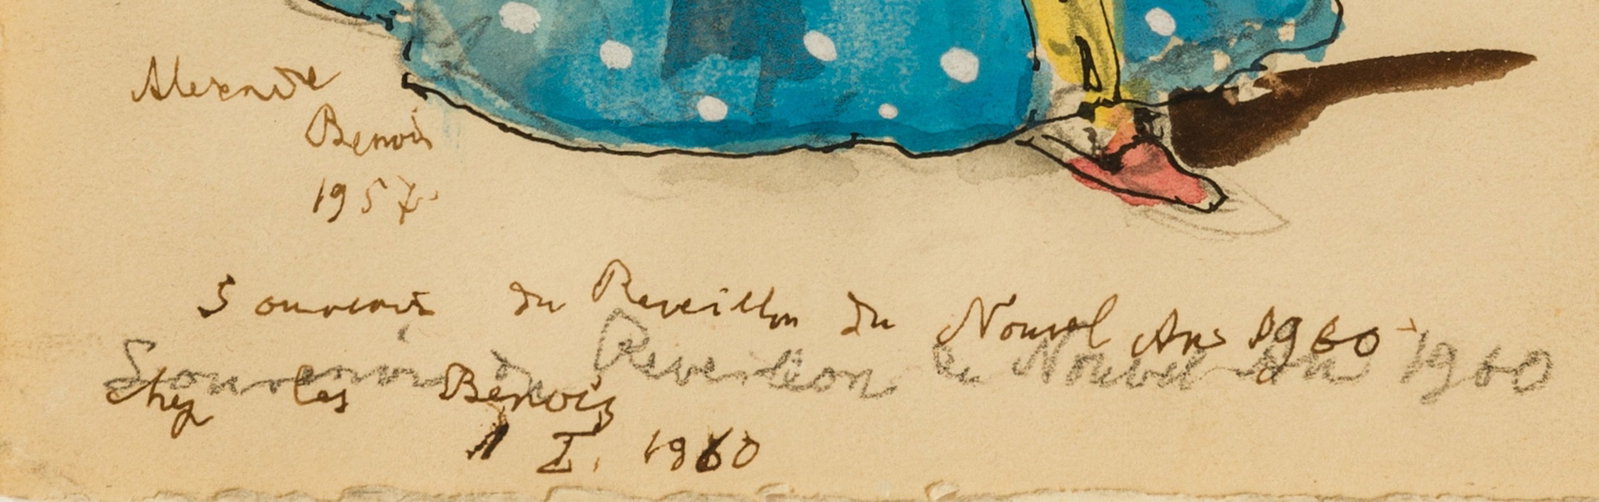 Alexandre
Benois
1957.
Souvenir du Reveillon du Nouvel An 1960
Souvenir du Reveillon du Nouvel An 1960
chez les Benois
1 I. 1960